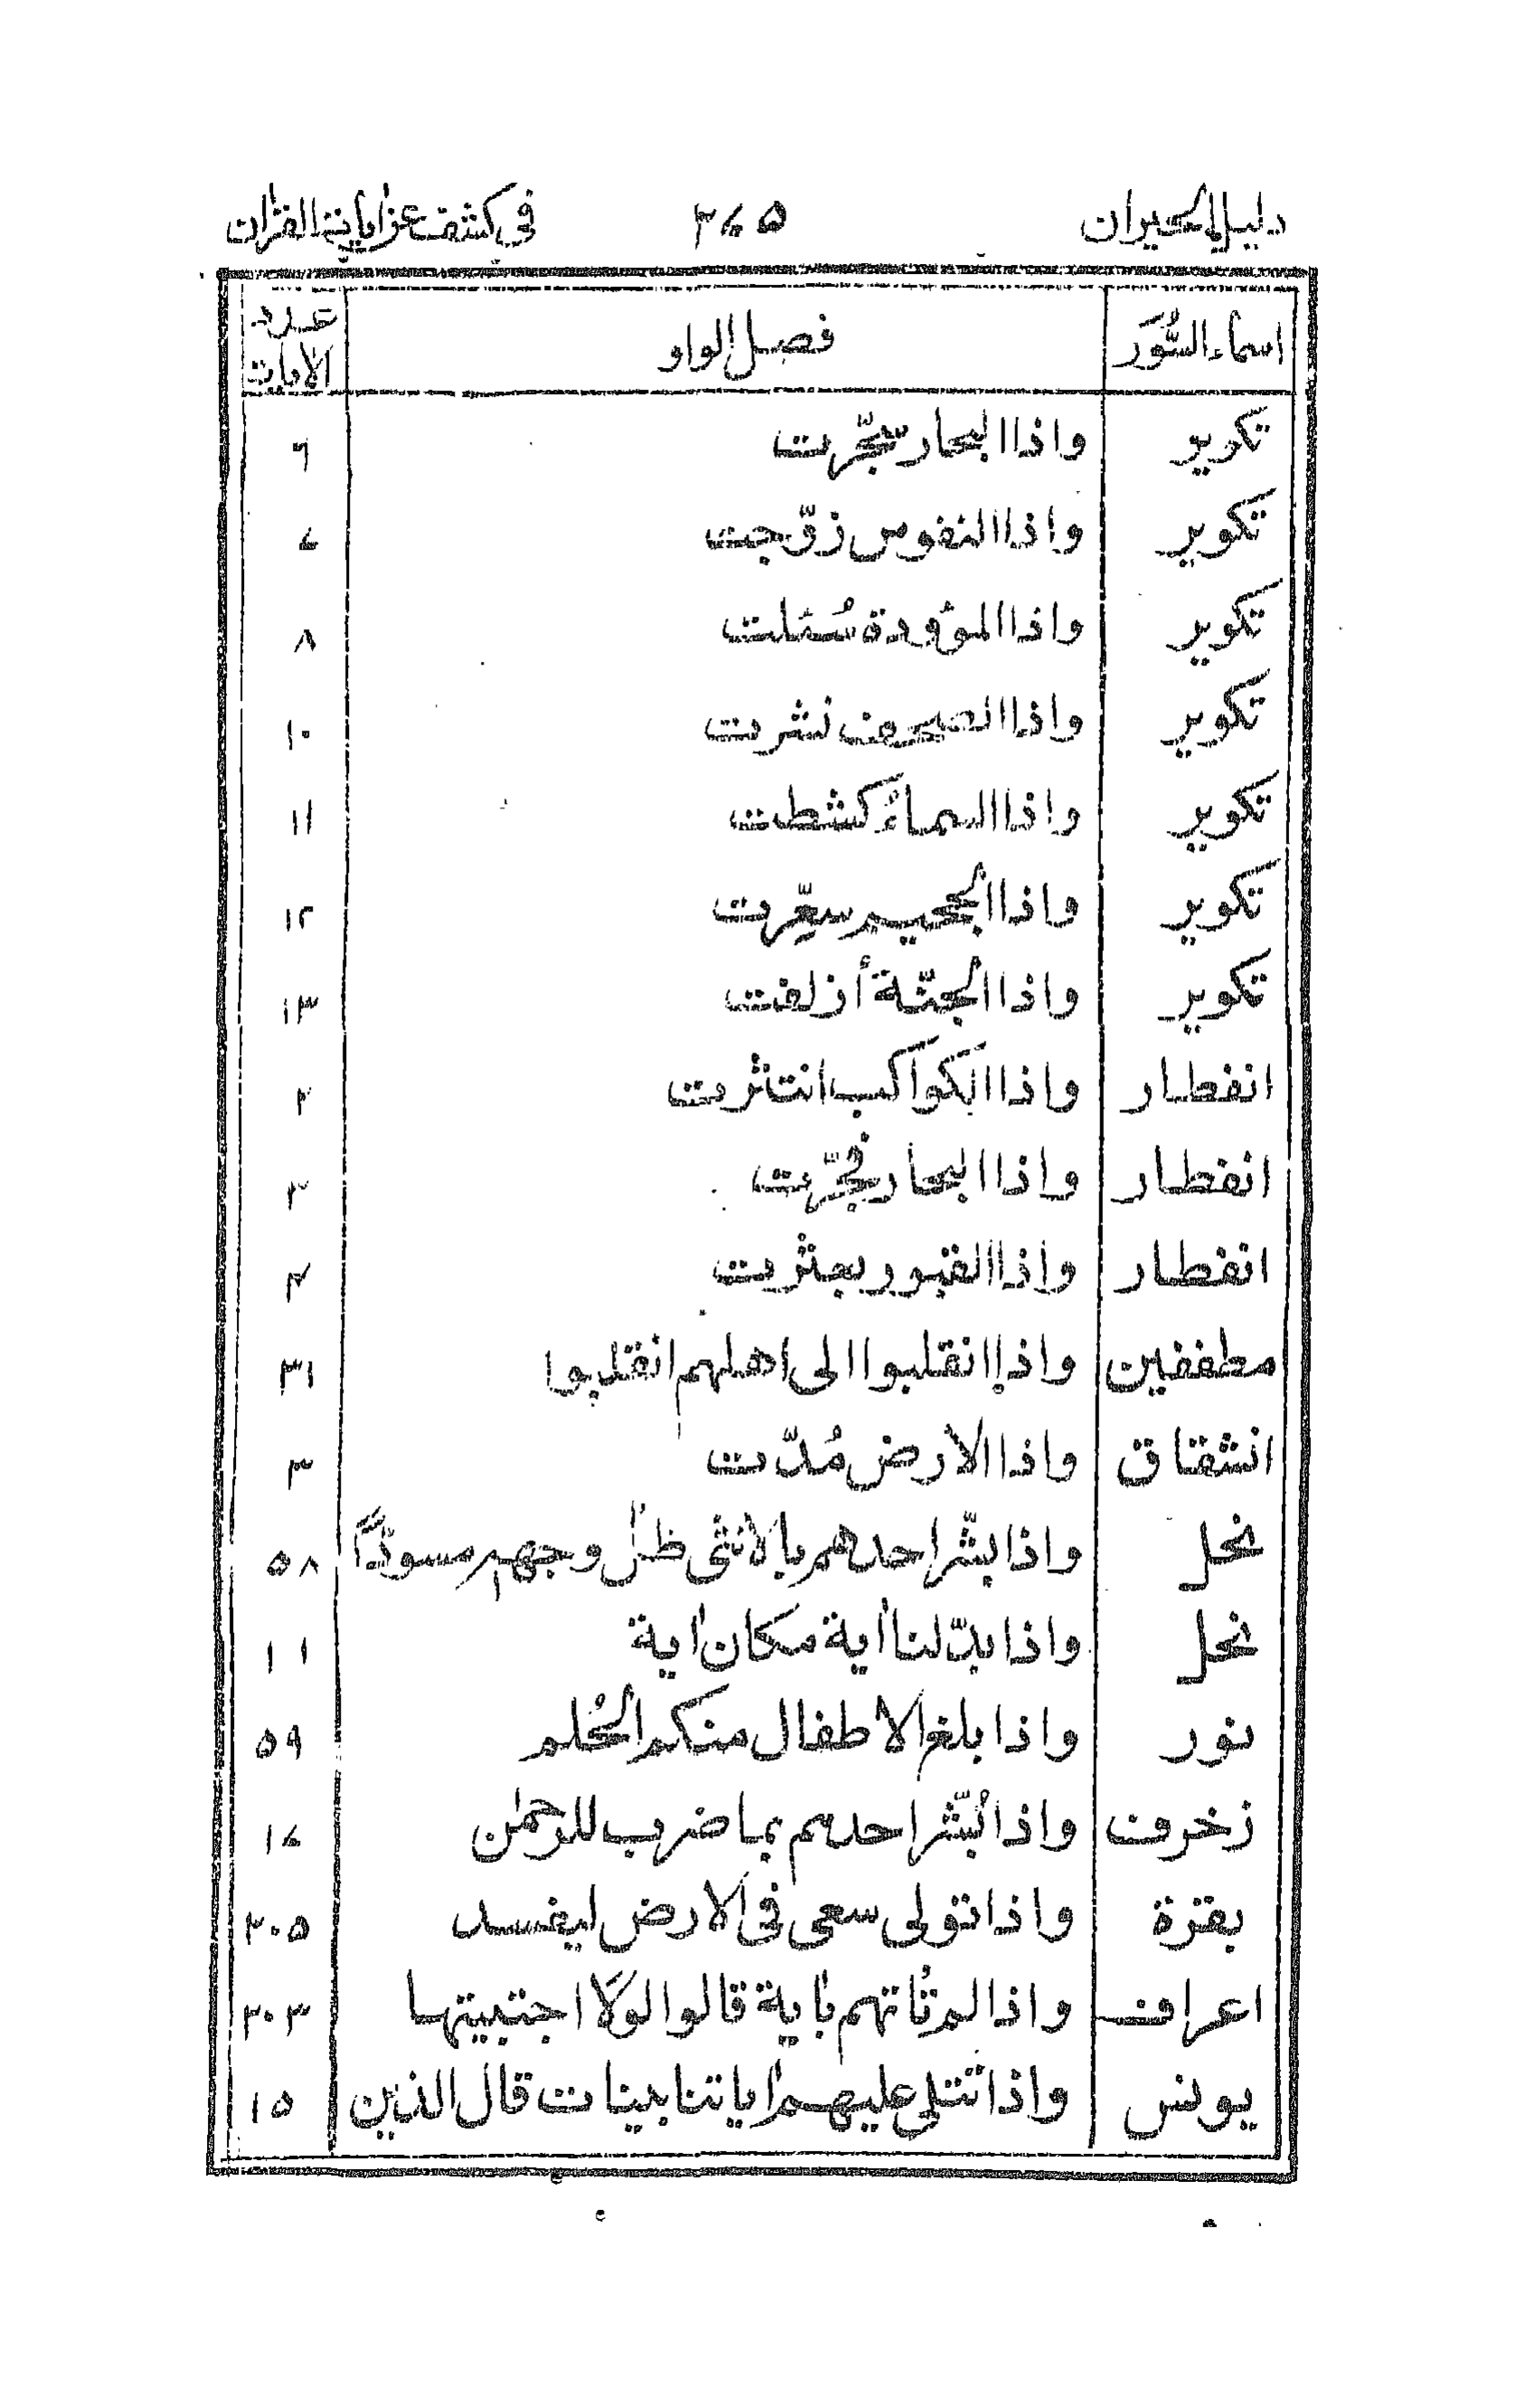 دليل الحيران ٣٧٥ في كشف عن ايات القرآن
اسماء السُّوَر فصل الواو عدد الآيات
تكوير واذا البحار سجّرت ٦
تكوير واذا النفوس زوّجت ٧
تكوير واذا الموؤدة سُئلت ٨
تكوير واذا الصحف نشرت ١٠
تكوير واذا السماءُ كشطت ١١
تكوير واذا الجحيم سعّرت ١٢
تكوير واذا الجنّة أزلفت ١٣
انفطار واذا الكواكب انتثرت ٢
انفطار واذا البحار فجّرت ٣
انفطار واذا القبور بعثرت ٤
مطففين واذا انقلبوا الى اهلهم انقلبوا ٣١
انشقاق واذا الارض مُدّت ٣
نحل واذا بشّر احدهم بالانثى ظلّ وجهه مسودّاً ٥٨
نحل واذا بدّلنا اٰية مكان اٰية ١٠١
نور واذا بلغ الاطفال منكم الحُلم ٥٩
زخرف واذا بُشّر احدهم بما ضرب للرحمٰن ١٧
بقرة واذا تولى سعى فى الارض ليفسد ٢٠٥
اعراف واذا لم تُاتهم باٰية قالوا لولَا اجتبيتها ٢٠٣
يونس واذا تتلى عليهم اٰياتنا بينات قال الذين ١٥